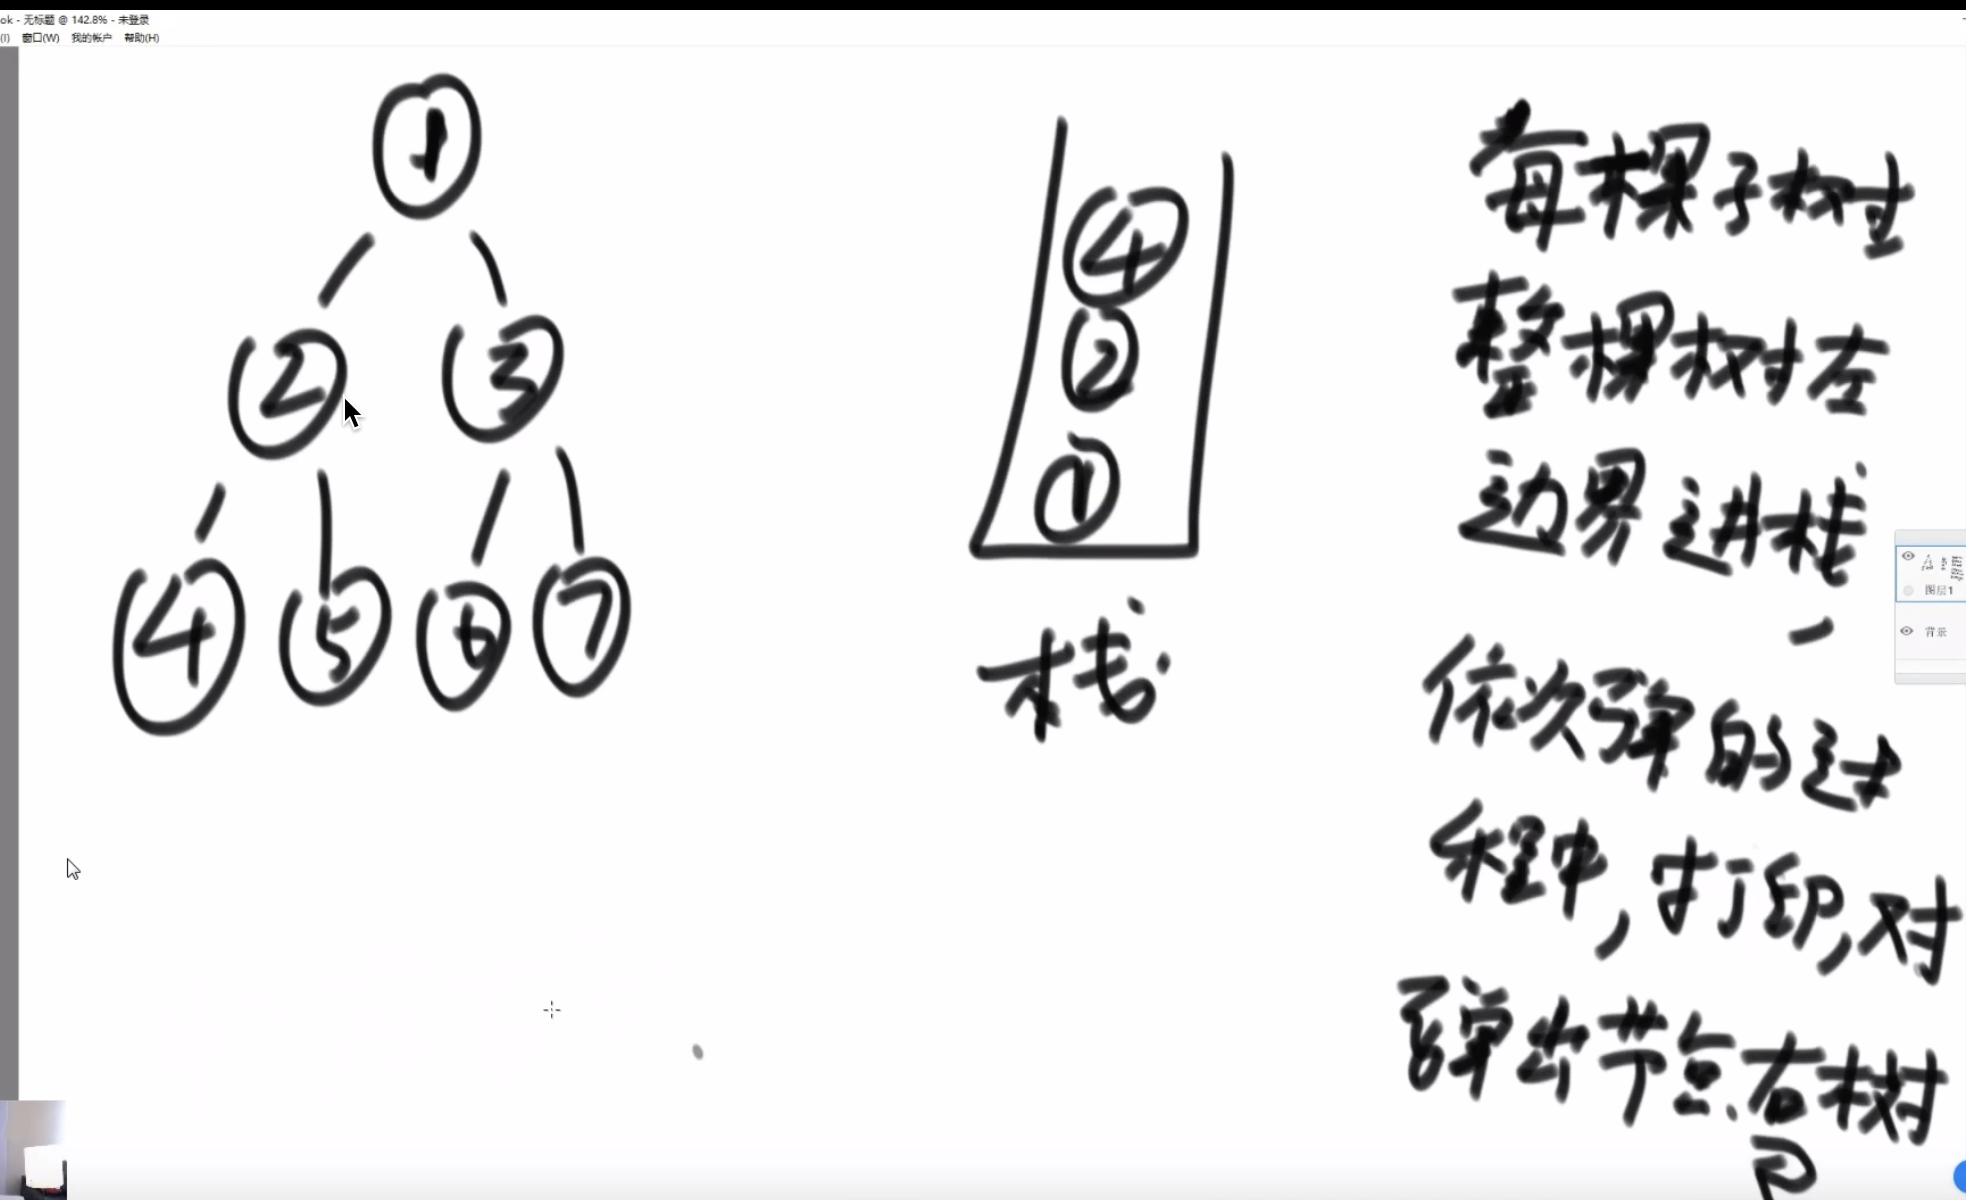 ok - 无标题 @ 142.8% - 未登录
(I) 窗口(W) 我的帐户 帮助(H)
1
2 3
4 5 6 7
4
2
1
栈
每棵子树
整棵树左
边界进栈,
依次弹的过
程中,打印,对
弹出节点右树
图层1
背景